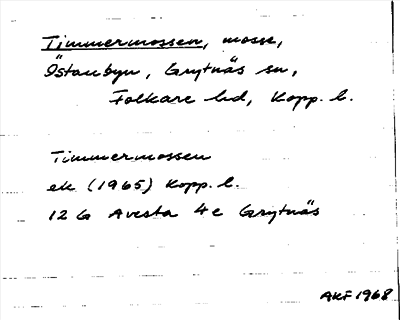 Timmermossen, mosse,
Östanbyn, Grytnäs sn,
Folkare hd, Kopp. l.
Timmermossen
ek (1965) Kopp. l.
12 G Avesta 4c Grytnäs
AKF 1968